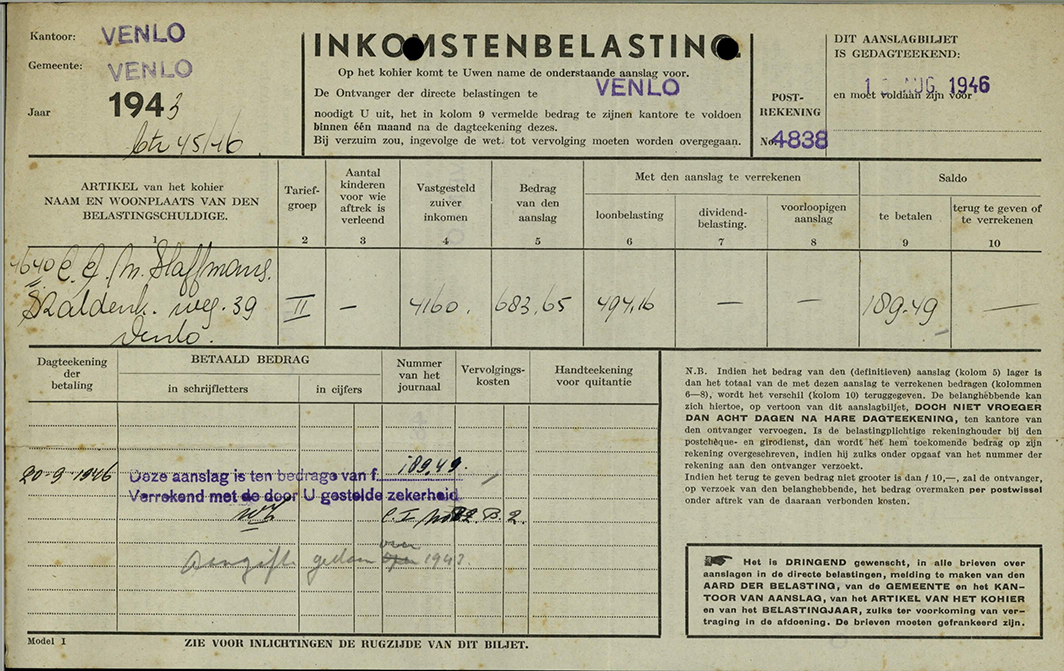 Kantoor: VENLO
Gemeente: VENLO
Jaar 1943
45/46.
INKOMSTENBELASTING
Op het kohier komt te Uwen name de onderstaande aanslag voor.
De Ontvanger der directe belastingen te VENLO
noodigt U uit, het in kolom 9 vermelde bedrag te zijnen kantore te voldoen
binnen één maand na de dagteekening dezes.
Bij verzuim zou, ingevolge de wet, tot vervolging moeten worden overgegaan.
POST-
REKENING
No. 4838
DIT AANSLAGBILJET
IS GEDAGTEEKEND:
AUG 1946
en moet voldaan zijn vóór
ARTIKEL van het kohier
NAAM EN WOONPLAATS VAN DEN
BELASTINGSCHULDIGE.
1
Tarief-
groep
2
Aantal
kinderen
voor wie
aftrek is
verleend
3
Vastgesteld
zuiver
inkomen
4
Bedrag
van den
aanslag
5
Met den aanslag te verrekenen
loonbelasting
6
dividend-
belasting.
7
voorloopigen
aanslag
8
Saldo
te betalen
9
terug te geven of
te verrekenen
10
4640 C. J. M. Staffmans.
weg. 39
Venlo.
II
—
4160.
683,65
494,16
—
—
189.49
—
Dagteekening
der
betaling
BETAALD BEDRAG
in schrijfletters
in cijfers
Nummer
van het
journaal
Vervolgings-
kosten
Handteekening
voor quitantie
20-9-1946
Deze aanslag is ten bedrage van f. 189,49.
Verrekend met de door U gestelde zekerheid
B. 2.
over
Aangifte gedaan 1943.
N.B. Indien het bedrag van den (definitieven) aanslag (kolom 5) lager is
dan het totaal van de met dezen aanslag te verrekenen bedragen (kolommen
6—8), wordt het verschil (kolom 10) teruggegeven. De belanghebbende kan
zich hiertoe, op vertoon van dit aanslagbiljet, DOCH NIET VROEGER
DAN ACHT DAGEN NA HARE DAGTEEKENING, ten kantore van
den ontvanger vervoegen. Is de belastingplichtige rekeninghouder bij den
postchèque- en girodienst, dan wordt het hem toekomende bedrag op zijn
rekening overgeschreven, indien hij zulks onder opgaaf van het nummer der
rekening aan den ontvanger verzoekt.
Indien het terug te geven bedrag niet grooter is dan f 10,—, zal de ontvanger,
op verzoek van den belanghebbende, het bedrag overmaken per postwissel
onder aftrek van de daaraan verbonden kosten.
Het is DRINGEND gewenscht, in alle brieven over
aanslagen in de directe belastingen, melding te maken van den
AARD DER BELASTING, van de GEMEENTE en het KAN-
TOOR VAN AANSLAG, van het ARTIKEL VAN HET KOHIER
en van het BELASTINGJAAR, zulks ter voorkoming van ver-
traging in de afdoening. De brieven moeten gefrankeerd zijn.
Model I
ZIE VOOR INLICHTINGEN DE RUGZIJDE VAN DIT BILJET.